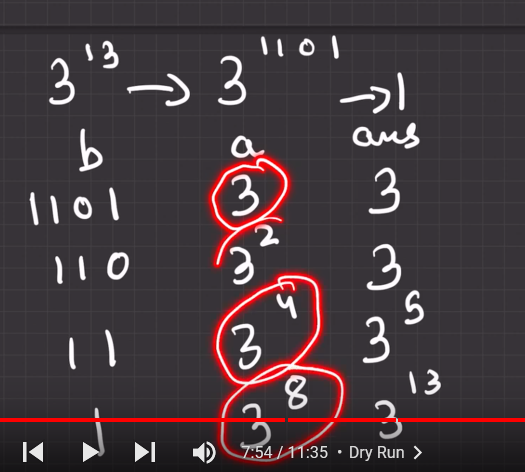 3^13 → 3^1101
→1
b a ans
1101 3 3
110 3^2 3
11 3^4 3^5
1 3^8 3^13
7:54 / 11:35 • Dry Run >